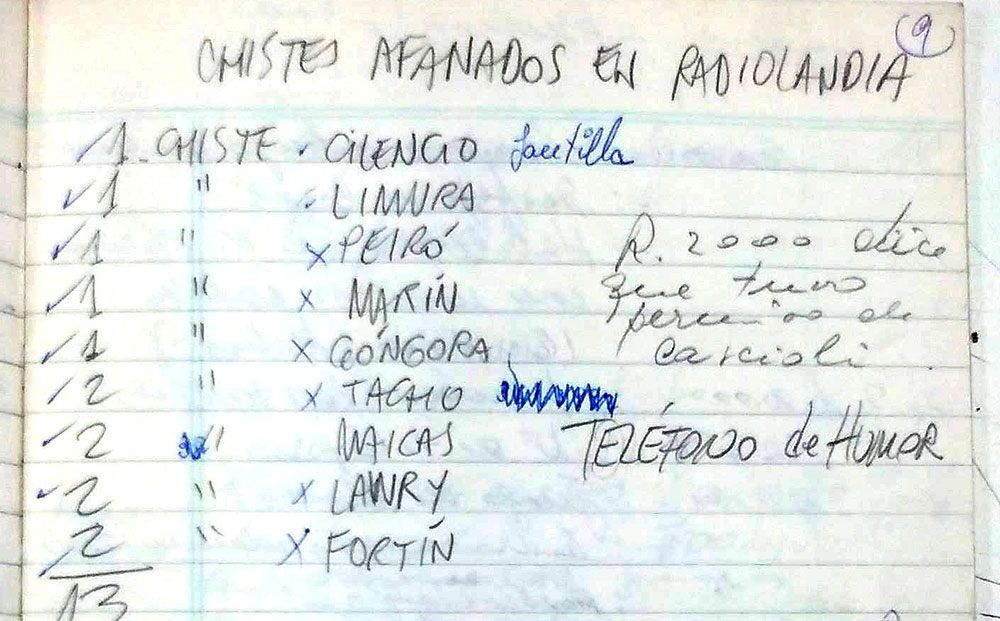 9
CHISTES AFANADOS EN RADIOLANDIA
✓ 1 - CHISTE . CILENCIO Jautilla
✓ 1 " . LIMURA
✓ 1 " x PEIRÓ R. 2000 dice
✓ 1 " x MARÍN que tuvo
✓ 1 " x GÓNGORA permiso de Cascioli
✓ 2 " x TACHO
✓ 2 " MAICAS TELÉFONO de HUMOR
✓ 2 " x LAWRY
✓ 2 " x FORTÍN
13